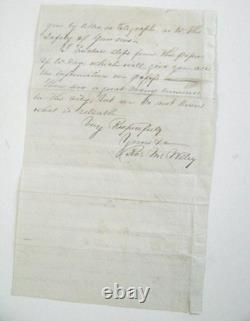 you by letter or telegraph, as to the
safety of your son.
I enclose slips from the papers
of to day which will give you all
the information we possess
There are a great many rumours
in the city, but we do not know
what is reliable
Very Respectfully
Yours &c
Robt Mc